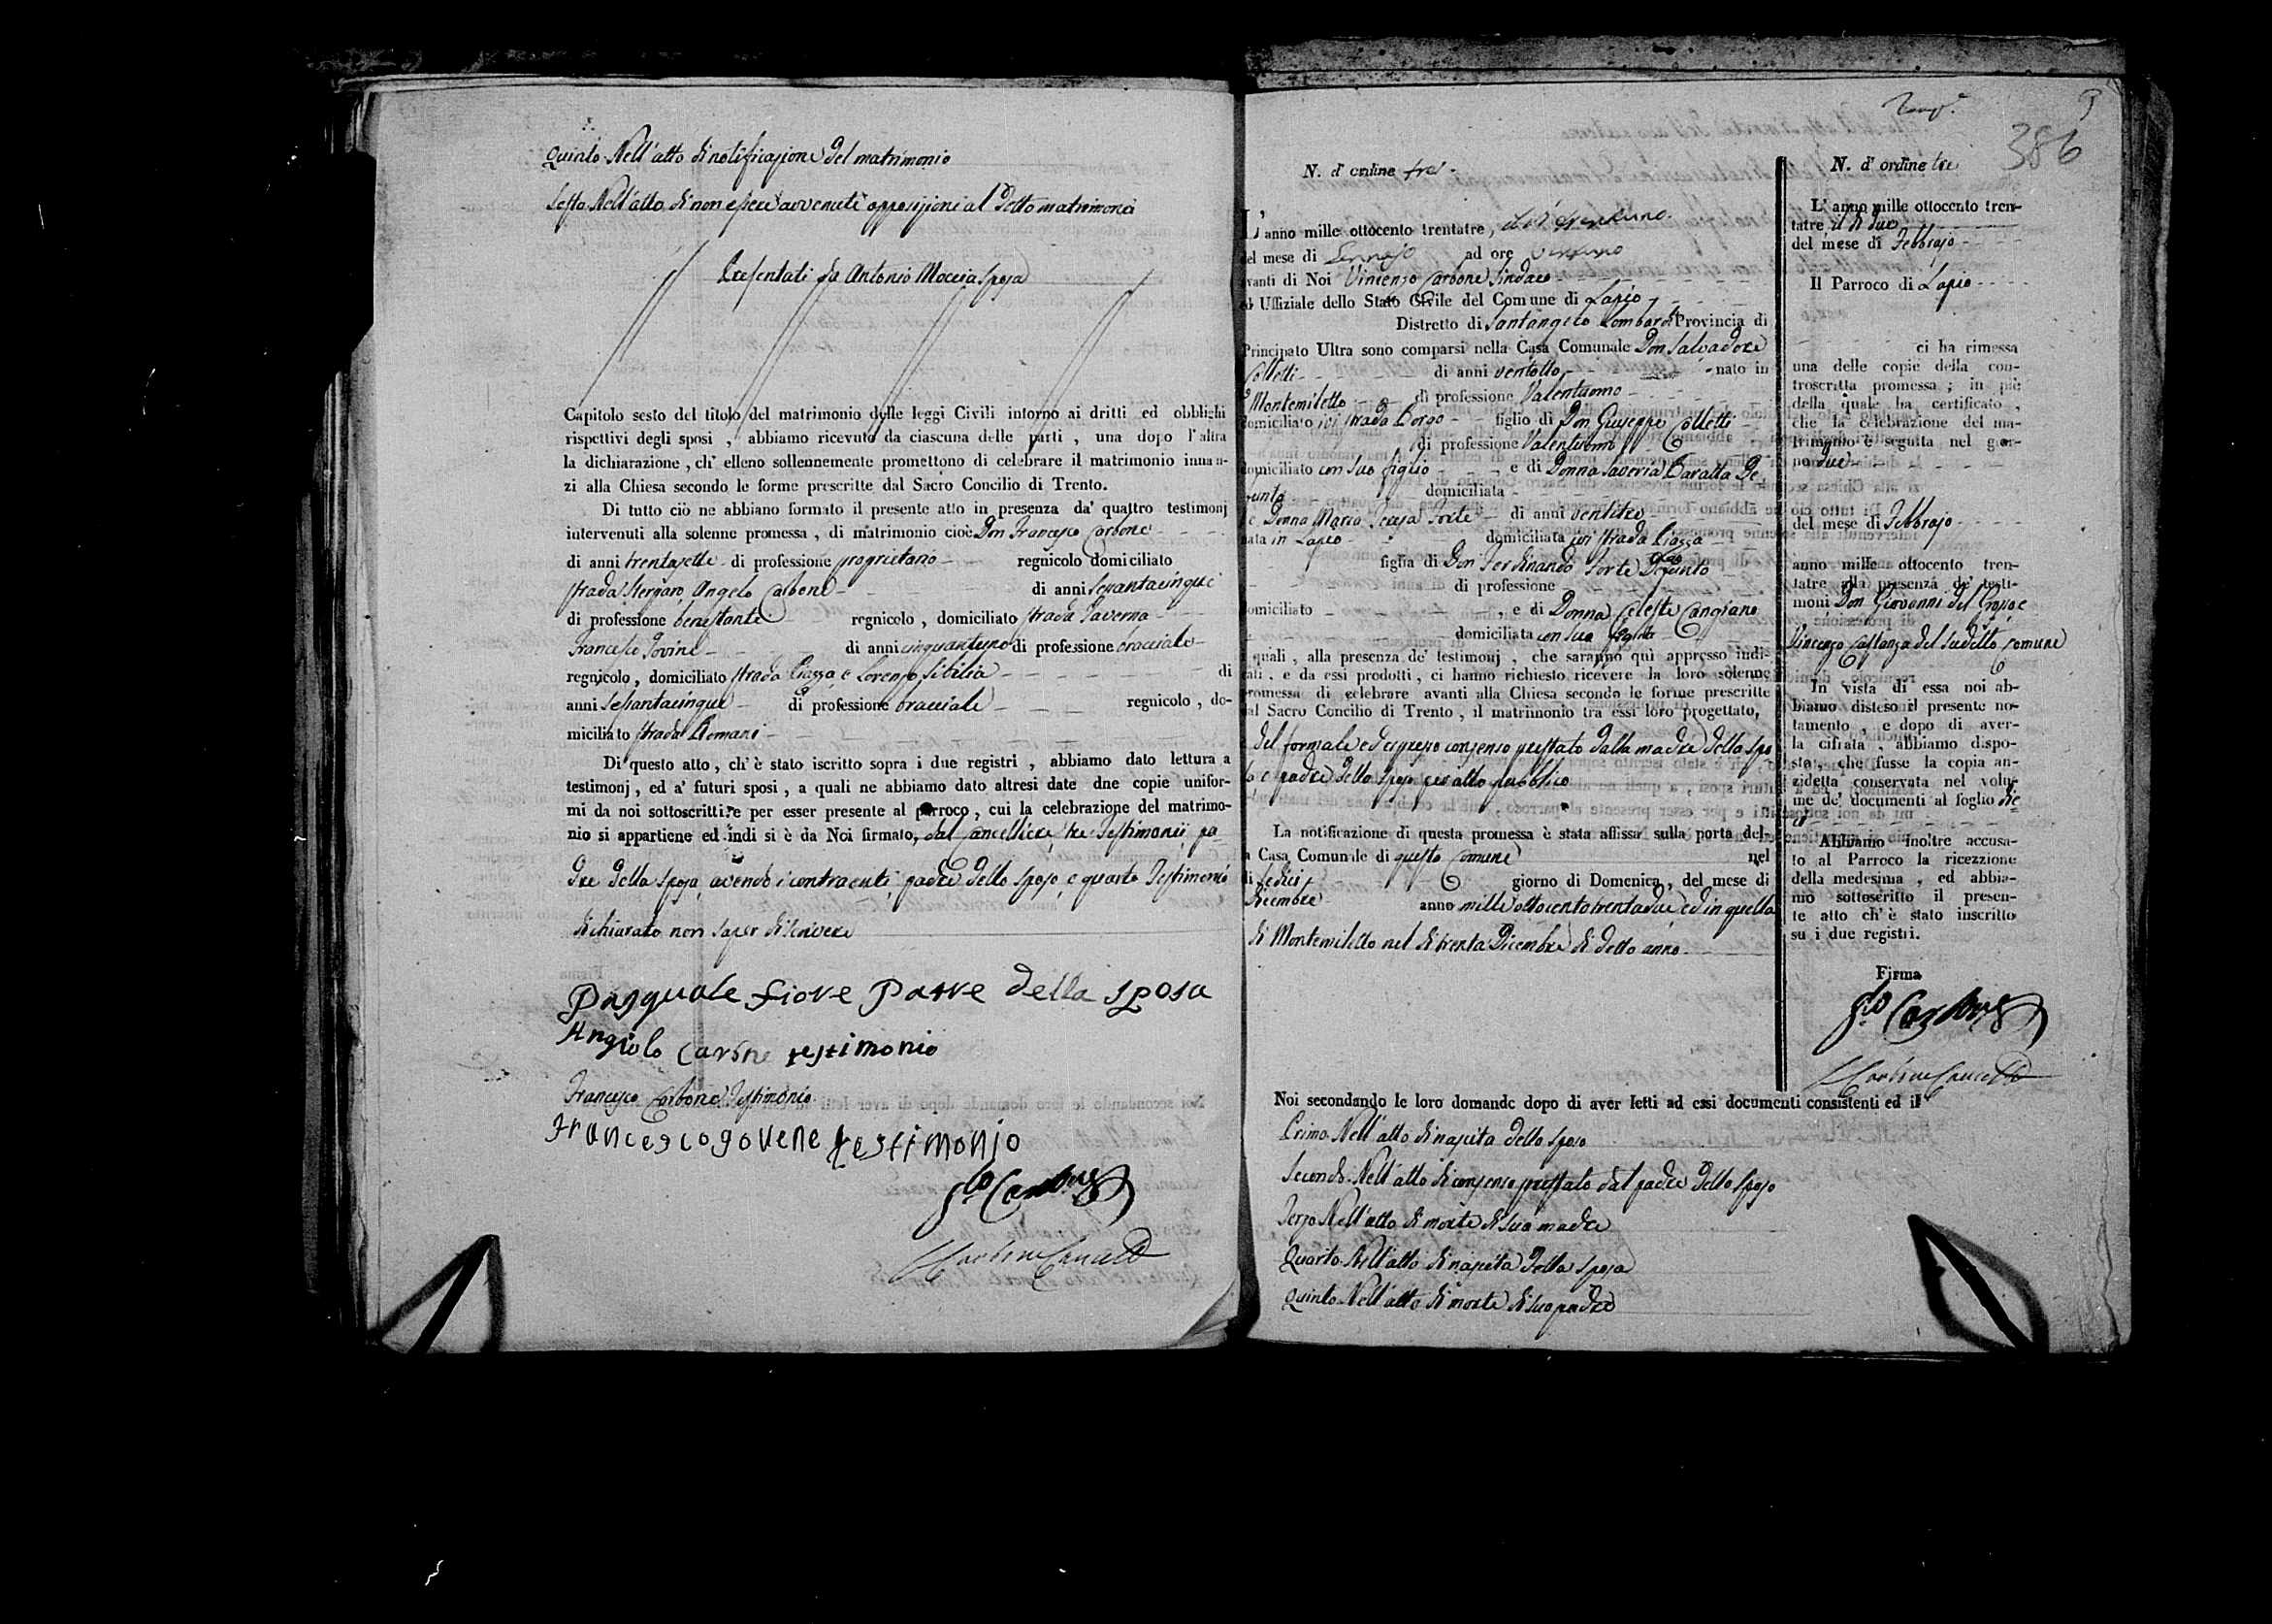 Quinto Nell'atto di notificazione del matrimonio
Sesto Nell'atto di non essere avvenute opposizioni al detto matrimonio
Presentati da Antonio Moccia sposo
Capitolo sesto del titolo del matrimonio delle leggi Civili intorno ai dritti ed obblighi
rispettivi degli sposi , abbiamo ricevuto da ciascuna delle parti , una dopo l'altra
la dichiarazione , ch' elleno sollennemente promettono di celebrare il matrimonio innan-
zi alla Chiesa secondo le forme prescritte dal Sacro Concilio di Trento.
Di tutto ciò ne abbiano formato il presente atto in presenza da' quattro testimonj
intervenuti alla solenne promessa , di matrimonio cioè Don Francesco Carbone
di anni trentasette di professione proprietario regnicolo domiciliato
strada Angelo Carbone di anni sessantacinque
di professione benestante regnicolo , domiciliato strada Taverna
Francesco Iovine di anni cinquantuno di professione bracciale
regnicolo , domiciliato strada Piazza e Lorenzo Sibilia di
anni sessantacinque di professione bracciale regnicolo , do-
miciliato strada Romani
Di questo atto , ch' è stato iscritto sopra i due registri , abbiamo dato lettura a
testimonj , ed a' futuri sposi , a quali ne abbiamo dato altresi date dne copie unifor-
mi da noi sottoscritti.e per esser presente al parroco , cui la celebrazione del matrimo-
nio si appartiene ed indi si è da Noi firmato, dal Cancelliere, tre Testimonii, pa-
dre della sposa, avendo i contraenti, padre dello sposo, e quarto Testimonio
dichiarato non saper di scrivere
Pasquale fiore Patre della sposa
Angiolo Carbne testimonio
Francesco Carbone Testimonio
Francesco govene testimonjo
Carbone
Carbone Cancell
386
N. d' ordine tre
L' anno mille ottocento trentatre, il dì ventuno
del mese di Gennajo ad ore
avanti di Noi Vincenzo Carbone Sindaco
ed Uffiziale dello Stato Civile del Comune di Lapio
Distretto di Santangelo Lombardi Provincia di
Principato Ultra sono comparsi nella Casa Comunale Don Salvadore
Colletti di anni ventotto nato in
Montemiletto di professione Valentuomo
domiciliato ivi strada Borgo figlio di Don Giuseppe Colletti
di professione Valentuomo
domiciliato con suo figlio e di Donna Saveria Baratta De-
funta domiciliata
e Donna Maria Teresa Forte di anni ventitre
nata in Lapio domiciliata ivi strada Piazza
figlia di Don Ferdinando Forte Defunto
di professione
domiciliato , e di Donna Celeste Cangiano
domiciliata con sua figlia
i quali , alla presenza de' testimonj , che saranno quì appresso indi-
cati , e da essi prodotti , ci hanno richiesto ricevere la loro solenne
promessa di celebrare avanti alla Chiesa secondo le forme prescritte
dal Sacro Concilio di Trento , il matrimonio tra essi loro progettato,
del formale ed espresso consenso prestato dalla madre della spo
e padre dello sposo per atto pubblico
La notificazione di questa promessa è stata affissa sulla porta del-
la Casa Comunale di questo Comune nel
dì sedici giorno di Domenica , del mese di
Dicembre anno mille ottocento trentadue ed in quella
di Montemiletto nel dì trenta Dicembre di detto anno
Noi secondando le loro domande dopo di aver letti ad essi documenti consistenti ed il
Primo Nell'atto di nascita dello sposo
Secondo Nell'atto di consenso prestato dal padre dello sposo
Terzo Nell'atto di morte di sua madre
Quarto Nell'atto di nascita della sposa
Quinto Nell'atto di morte di suo padre
N. d' ordine tre
L' anno mille ottocento tren-
tatre, il dì due
del mese di Febbrajo
Il Parroco di Lapio
ci ha rimessa
una delle copie della con-
troscritta promessa ; in piè
della quale ha certificato ,
che la celebrazione del ma-
trimonio è seguita nel gior-
no due
del mese di Febbrajo
anno mille ottocento tren-
tatre alla presenza de' testi-
moni Don Giovanni del Grosso e
Vincenzo Castanza del sudetto comune
In vista di essa noi ab-
biamo disteso il presente no-
tamento , e dopo di aver-
la cifrata , abbiamo dispo-
sto , che fusse la copia an-
zidetta conservata nel volu-
me de' documenti al foglio
Abbiamo inoltre accusa-
to al Parroco la ricezzione
della medesima , ed abbia-
mo sottoscritto il presen-
te atto ch' è stato inscritto
su i due registri.
Firma
Carbone
Carbone Cancell